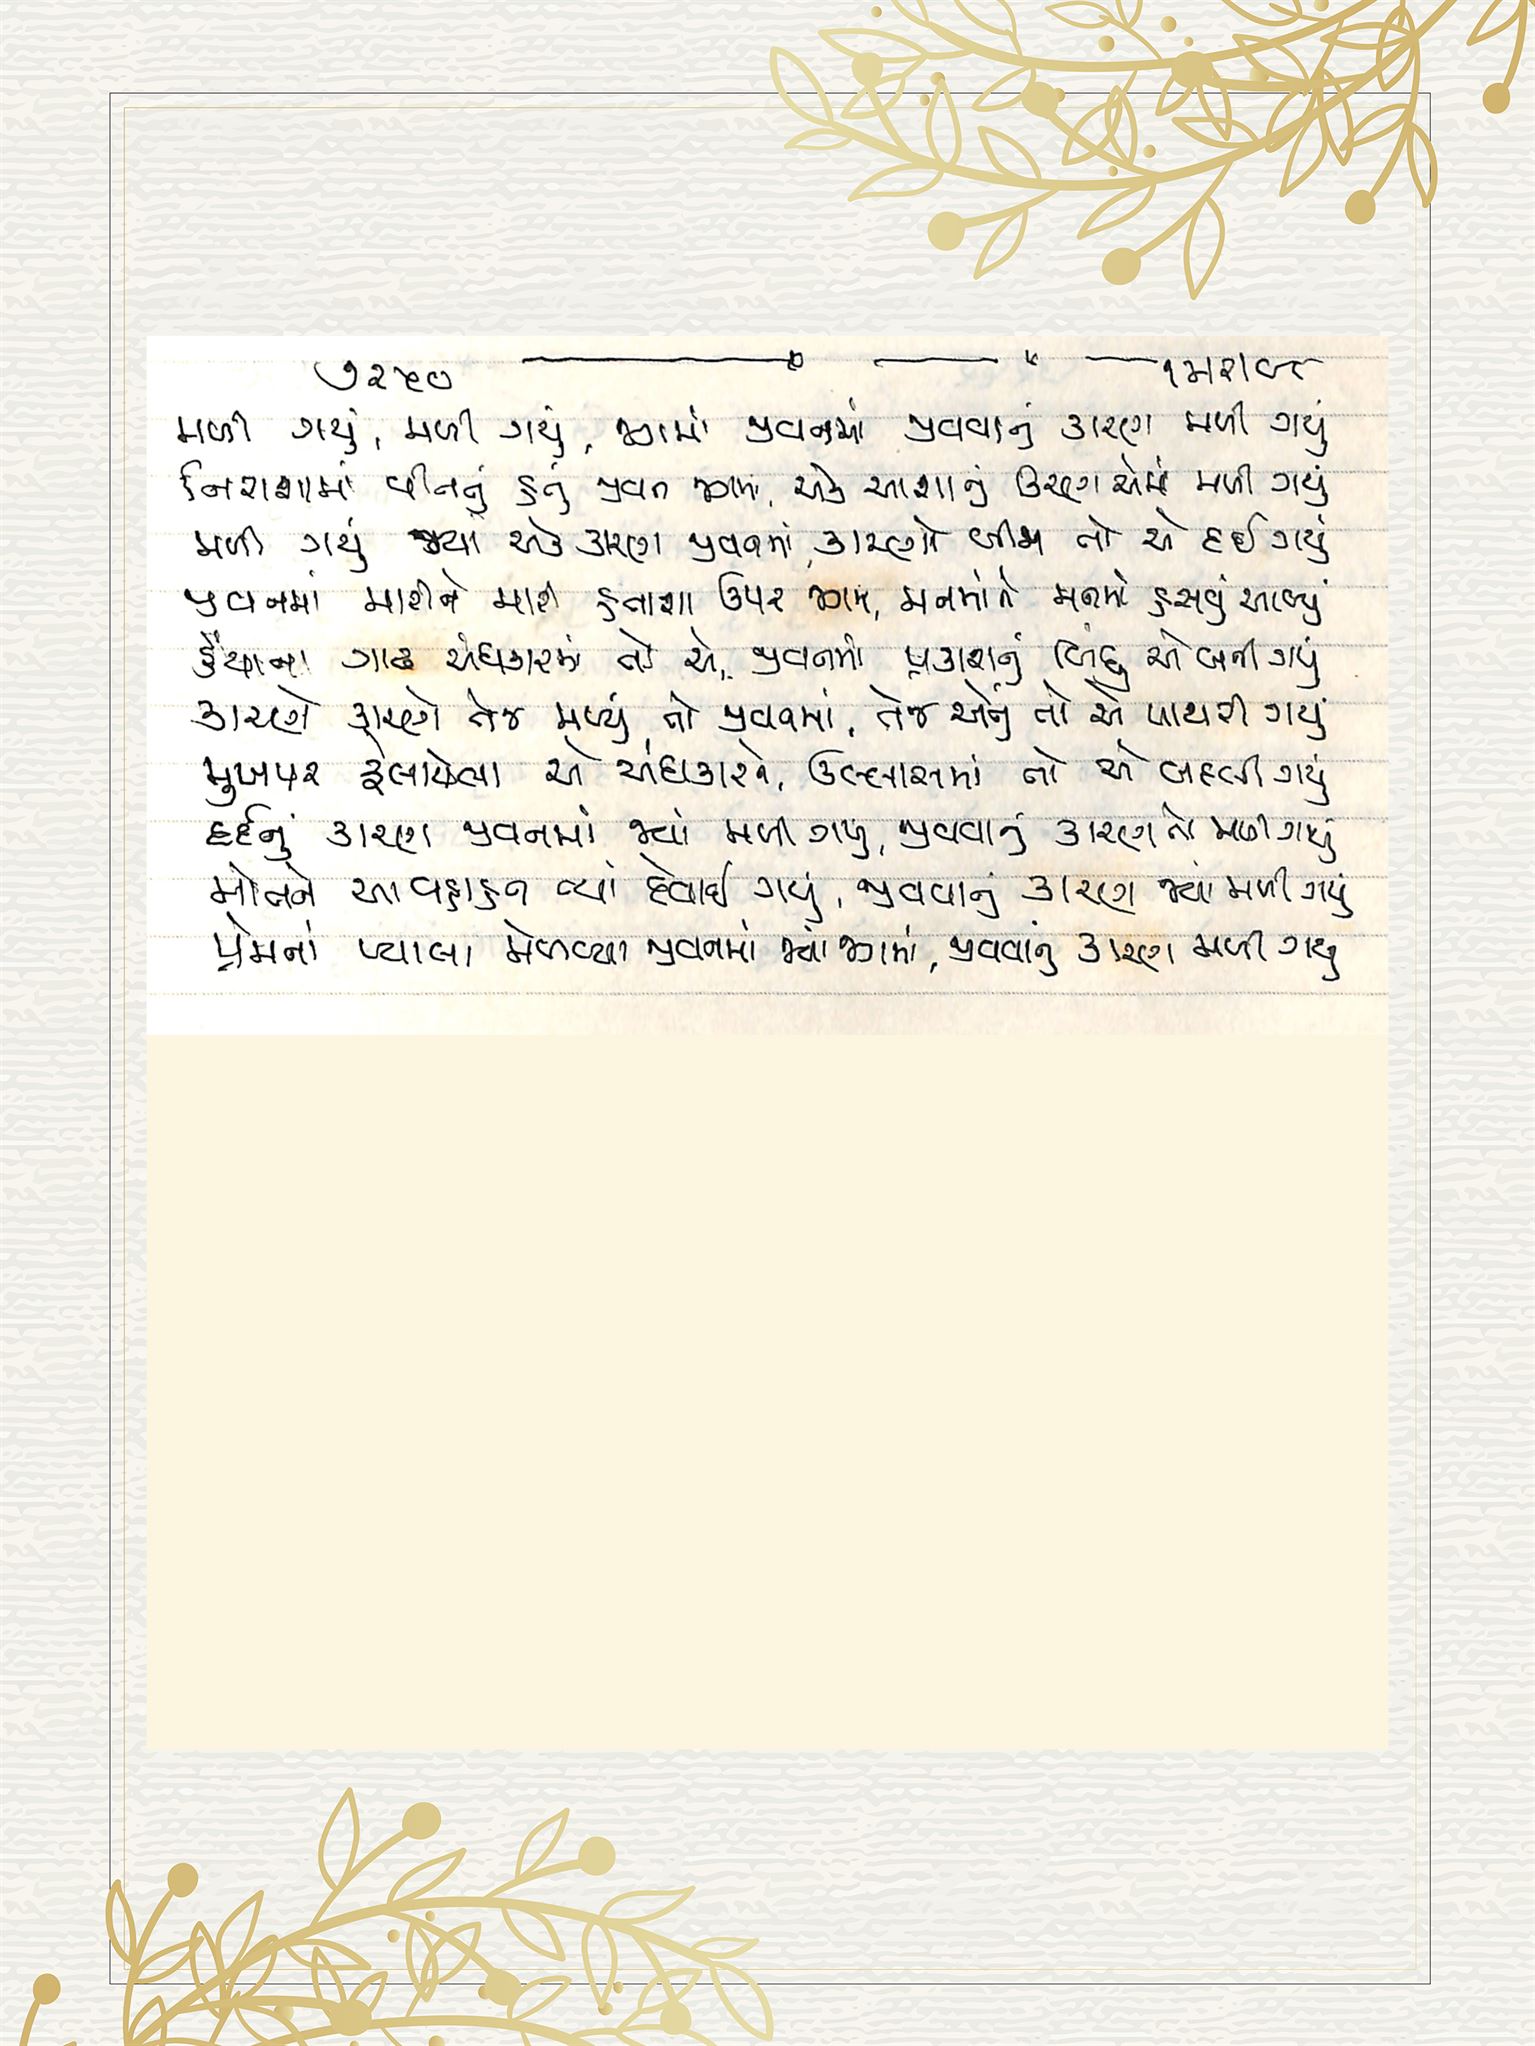 મળી ગયું, મળી ગયું, જગમાં જીવનમાં જીવવાનું કારણ મળી ગયું
નિરાશામાં વીતતું હતું જીવન જગમાં, એક આશાનું કિરણ એમાં મળી ગયું
મળી ગયું જ્યાં એક કારણ જીવનમાં, કારણો બીજા તો એ દઈ ગયું
જીવનમાં મારીને મારી હતાશા ઉપર જગમાં, મનમાંને મનમાં હસવું આવ્યું
હૈયાના ગાઢ અંધકારમાં તો એ, જીવનમાં પ્રકાશનું બિંદુ એ બની ગયું
કારણે કારણે તેજ મળ્યું તો જીવનમાં, તેજ એનું તો એ પાથરી ગયું
મુખપર ફેલાયેલા એ અંધકારને, ઉલ્લાસમાં તો એ બદલી ગયું
દર્દનું કારણ જીવનમાં જ્યાં મળી ગયું, જીવવાનું કારણ તો મળી ગયું
મોતને આવહાહન ત્યાં દેવાઈ ગયું, જીવવાનું કારણ જ્યાં મળી ગયું
પ્રેમનાં પ્યાલા મેળવ્યા જીવનમાં જ્યાં જગમાં, જીવવાનું કારણ મળી ગયું